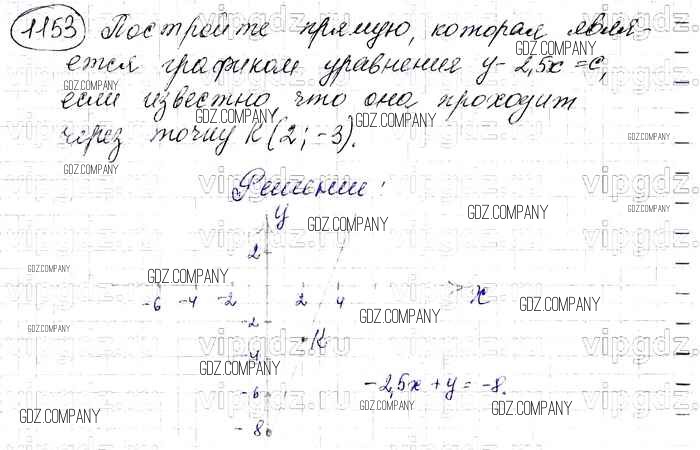 1153 Постройте прямую, которая явля-
ется графиком уравнения y-2,5x=c,
если известно, что она проходит
через точку K(2; -3).
Решение:
y
2
-6 -4 -2 2 4 x
-2
K
-4
-2,5x + y = -8.
-6
-8
GDZ.COMPANY
vipgdz.ru